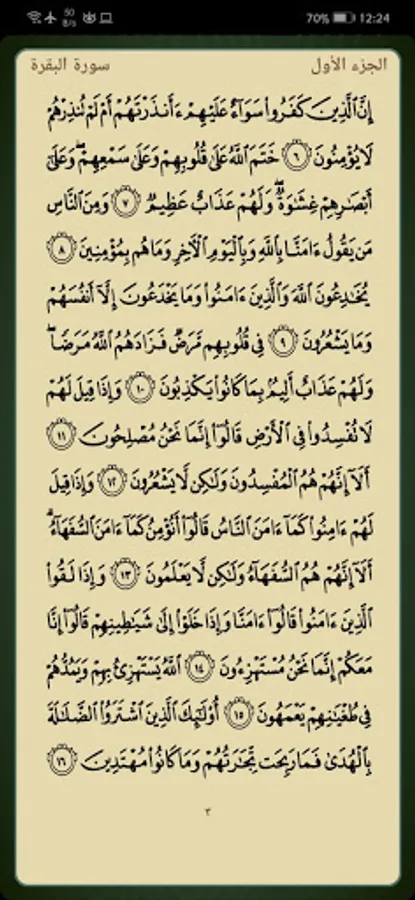 50 B/s 70% 12:24
الجزء الأول سورة البقرة
إِنَّ ٱلَّذِينَ كَفَرُوا۟ سَوَآءٌ عَلَيْهِمْ ءَأَنذَرْتَهُمْ أَمْ لَمْ تُنذِرْهُمْ
لَا يُؤْمِنُونَ ٦ خَتَمَ ٱللَّهُ عَلَىٰ قُلُوبِهِمْ وَعَلَىٰ سَمْعِهِمْ ۖ وَعَلَىٰٓ
أَبْصَـٰرِهِمْ غِشَـٰوَةٌ ۖ وَلَهُمْ عَذَابٌ عَظِيمٌ ٧ وَمِنَ ٱلنَّاسِ
مَن يَقُولُ ءَامَنَّا بِٱللَّهِ وَبِٱلْيَوْمِ ٱلْـَٔاخِرِ وَمَا هُم بِمُؤْمِنِينَ ٨
يُخَـٰدِعُونَ ٱللَّهَ وَٱلَّذِينَ ءَامَنُوا۟ وَمَا يَخْدَعُونَ إِلَّآ أَنفُسَهُمْ
وَمَا يَشْعُرُونَ ٩ فِى قُلُوبِهِم مَّرَضٌ فَزَادَهُمُ ٱللَّهُ مَرَضًا ۖ
وَلَهُمْ عَذَابٌ أَلِيمٌۢ بِمَا كَانُوا۟ يَكْذِبُونَ ١٠ وَإِذَا قِيلَ لَهُمْ
لَا تُفْسِدُوا۟ فِى ٱلْأَرْضِ قَالُوٓا۟ إِنَّمَا نَحْنُ مُصْلِحُونَ ١١
أَلَآ إِنَّهُمْ هُمُ ٱلْمُفْسِدُونَ وَلَـٰكِن لَّا يَشْعُرُونَ ١٢ وَإِذَا قِيلَ
لَهُمْ ءَامِنُوا۟ كَمَآ ءَامَنَ ٱلنَّاسُ قَالُوٓا۟ أَنُؤْمِنُ كَمَآ ءَامَنَ ٱلسُّفَهَآءُ ۗ
أَلَآ إِنَّهُمْ هُمُ ٱلسُّفَهَآءُ وَلَـٰكِن لَّا يَعْلَمُونَ ١٣ وَإِذَا لَقُوا۟
ٱلَّذِينَ ءَامَنُوا۟ قَالُوٓا۟ ءَامَنَّا وَإِذَا خَلَوْا۟ إِلَىٰ شَيَـٰطِينِهِمْ قَالُوٓا۟ إِنَّا
مَعَكُمْ إِنَّمَا نَحْنُ مُسْتَهْزِءُونَ ١٤ ٱللَّهُ يَسْتَهْزِئُ بِهِمْ وَيَمُدُّهُمْ
فِى طُغْيَـٰنِهِمْ يَعْمَهُونَ ١٥ أُو۟لَـٰٓئِكَ ٱلَّذِينَ ٱشْتَرَوُا۟ ٱلضَّلَـٰلَةَ
بِٱلْهُدَىٰ فَمَا رَبِحَت تِّجَـٰرَتُهُمْ وَمَا كَانُوا۟ مُهْتَدِينَ ١٦
٣